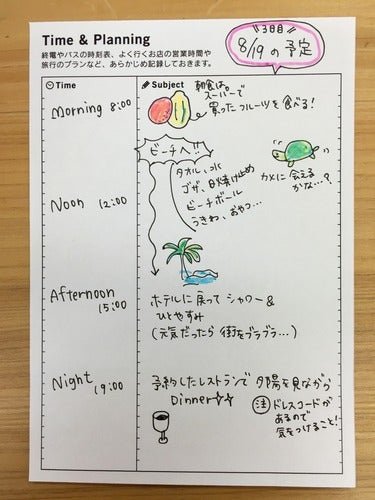 Time & Planning
終電やバスの時刻表、よく行くお店の営業時間や
旅行のプランなど、あらかじめ記録しておきます。
3日目
8/19 の予定
Time
Subject
Morning 8:00
朝食は。
スーパーで
買ったフルーツを食べる!
ビーチへ
タオル、水
ゴザ、日焼け止め
ビーチボール
うきわ、おやつ…
カメに会える
かな…?
Noon 12:00
Afternoon
15:00
ホテルに戻ってシャワー&
ひとやすみ
(元気だったら街をブラブラ…)
Night 19:00
予約したレストランで夕陽を見ながら
Dinner☆☆
注 ドレスコードが
あるので
気をつけること!